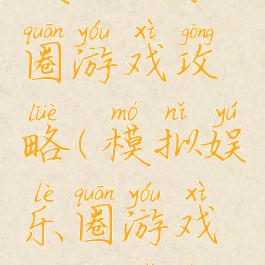 quān yóu xì gōng
圈游戏攻
lüè mó nǐ yú
略(模拟娱
lè quān yóu xì
乐圈游戏